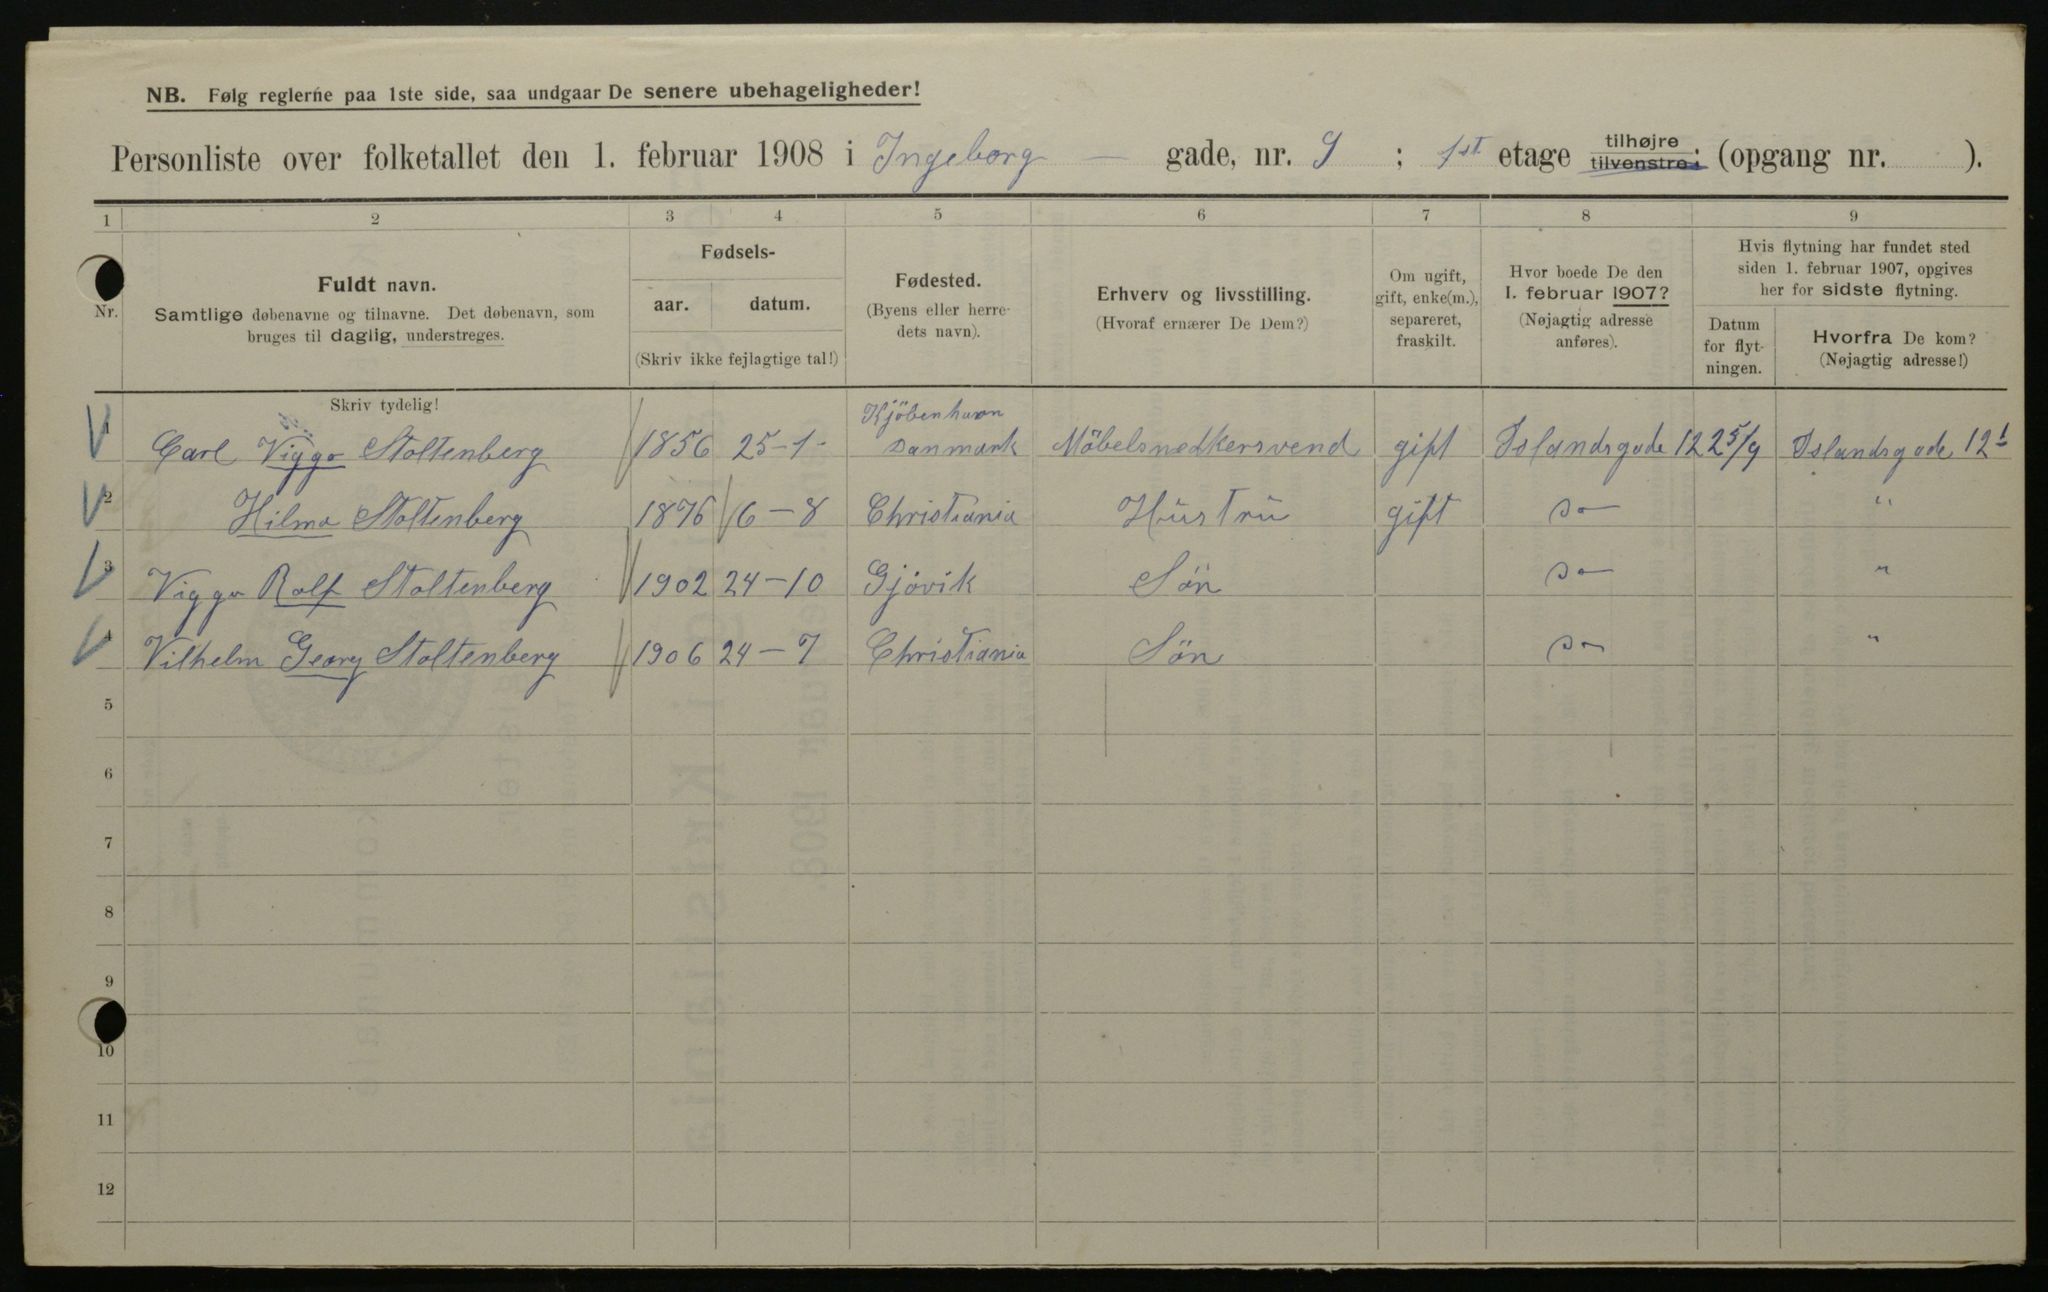 NB. Følg reglerne paa 1ste side, saa undgaar De senere ubehageligheder!
Personliste over folketallet den 1. februar 1908 i Ingeborg — gade, nr. 9 ; 1st etage tilhøjre tilvenstre; (opgang nr. ).
1 2 3 4 5 6 7 8 9
Nr.
Fuldt navn.
Samtlige døbenavne og tilnavne. Det døbenavn, som
bruges til daglig, understreges.
Fødsels-
aar. datum.
(Skriv ikke fejlagtige tal!)
Fødested.
(Byens eller herre-
dets navn).
Erhverv og livsstilling.
(Hvoraf ernærer De Dem?)
Om ugift,
gift, enke(m.),
separeret,
fraskilt.
Hvor boede De den
1. februar 1907?
(Nøjagtig adresse
anføres).
Hvis flytning har fundet sted
siden 1. februar 1907, opgives
her for sidste flytning.
Datum
for flyt-
ningen.
Hvorfra De kom?
(Nøjagtig adresse!)
Skriv tydelig!
1 Carl Viggo Stoltenberg 1856 25-1- Kjöbenhavn
Danmark Möbelsnedkersvend gift Islandsgade 12 25/9 Islandsgade 12 1
2 Hilma Stoltenberg 1876 6-8 Christiania Hustru gift do „
3 Viggo Rolf Stoltenberg 1902 24-10 Gjövik Sön do „
4 Vilhelm Georg Stoltenberg 1906 24-7 Christiania Sön do „
5
6
7
8
9
10
11
12